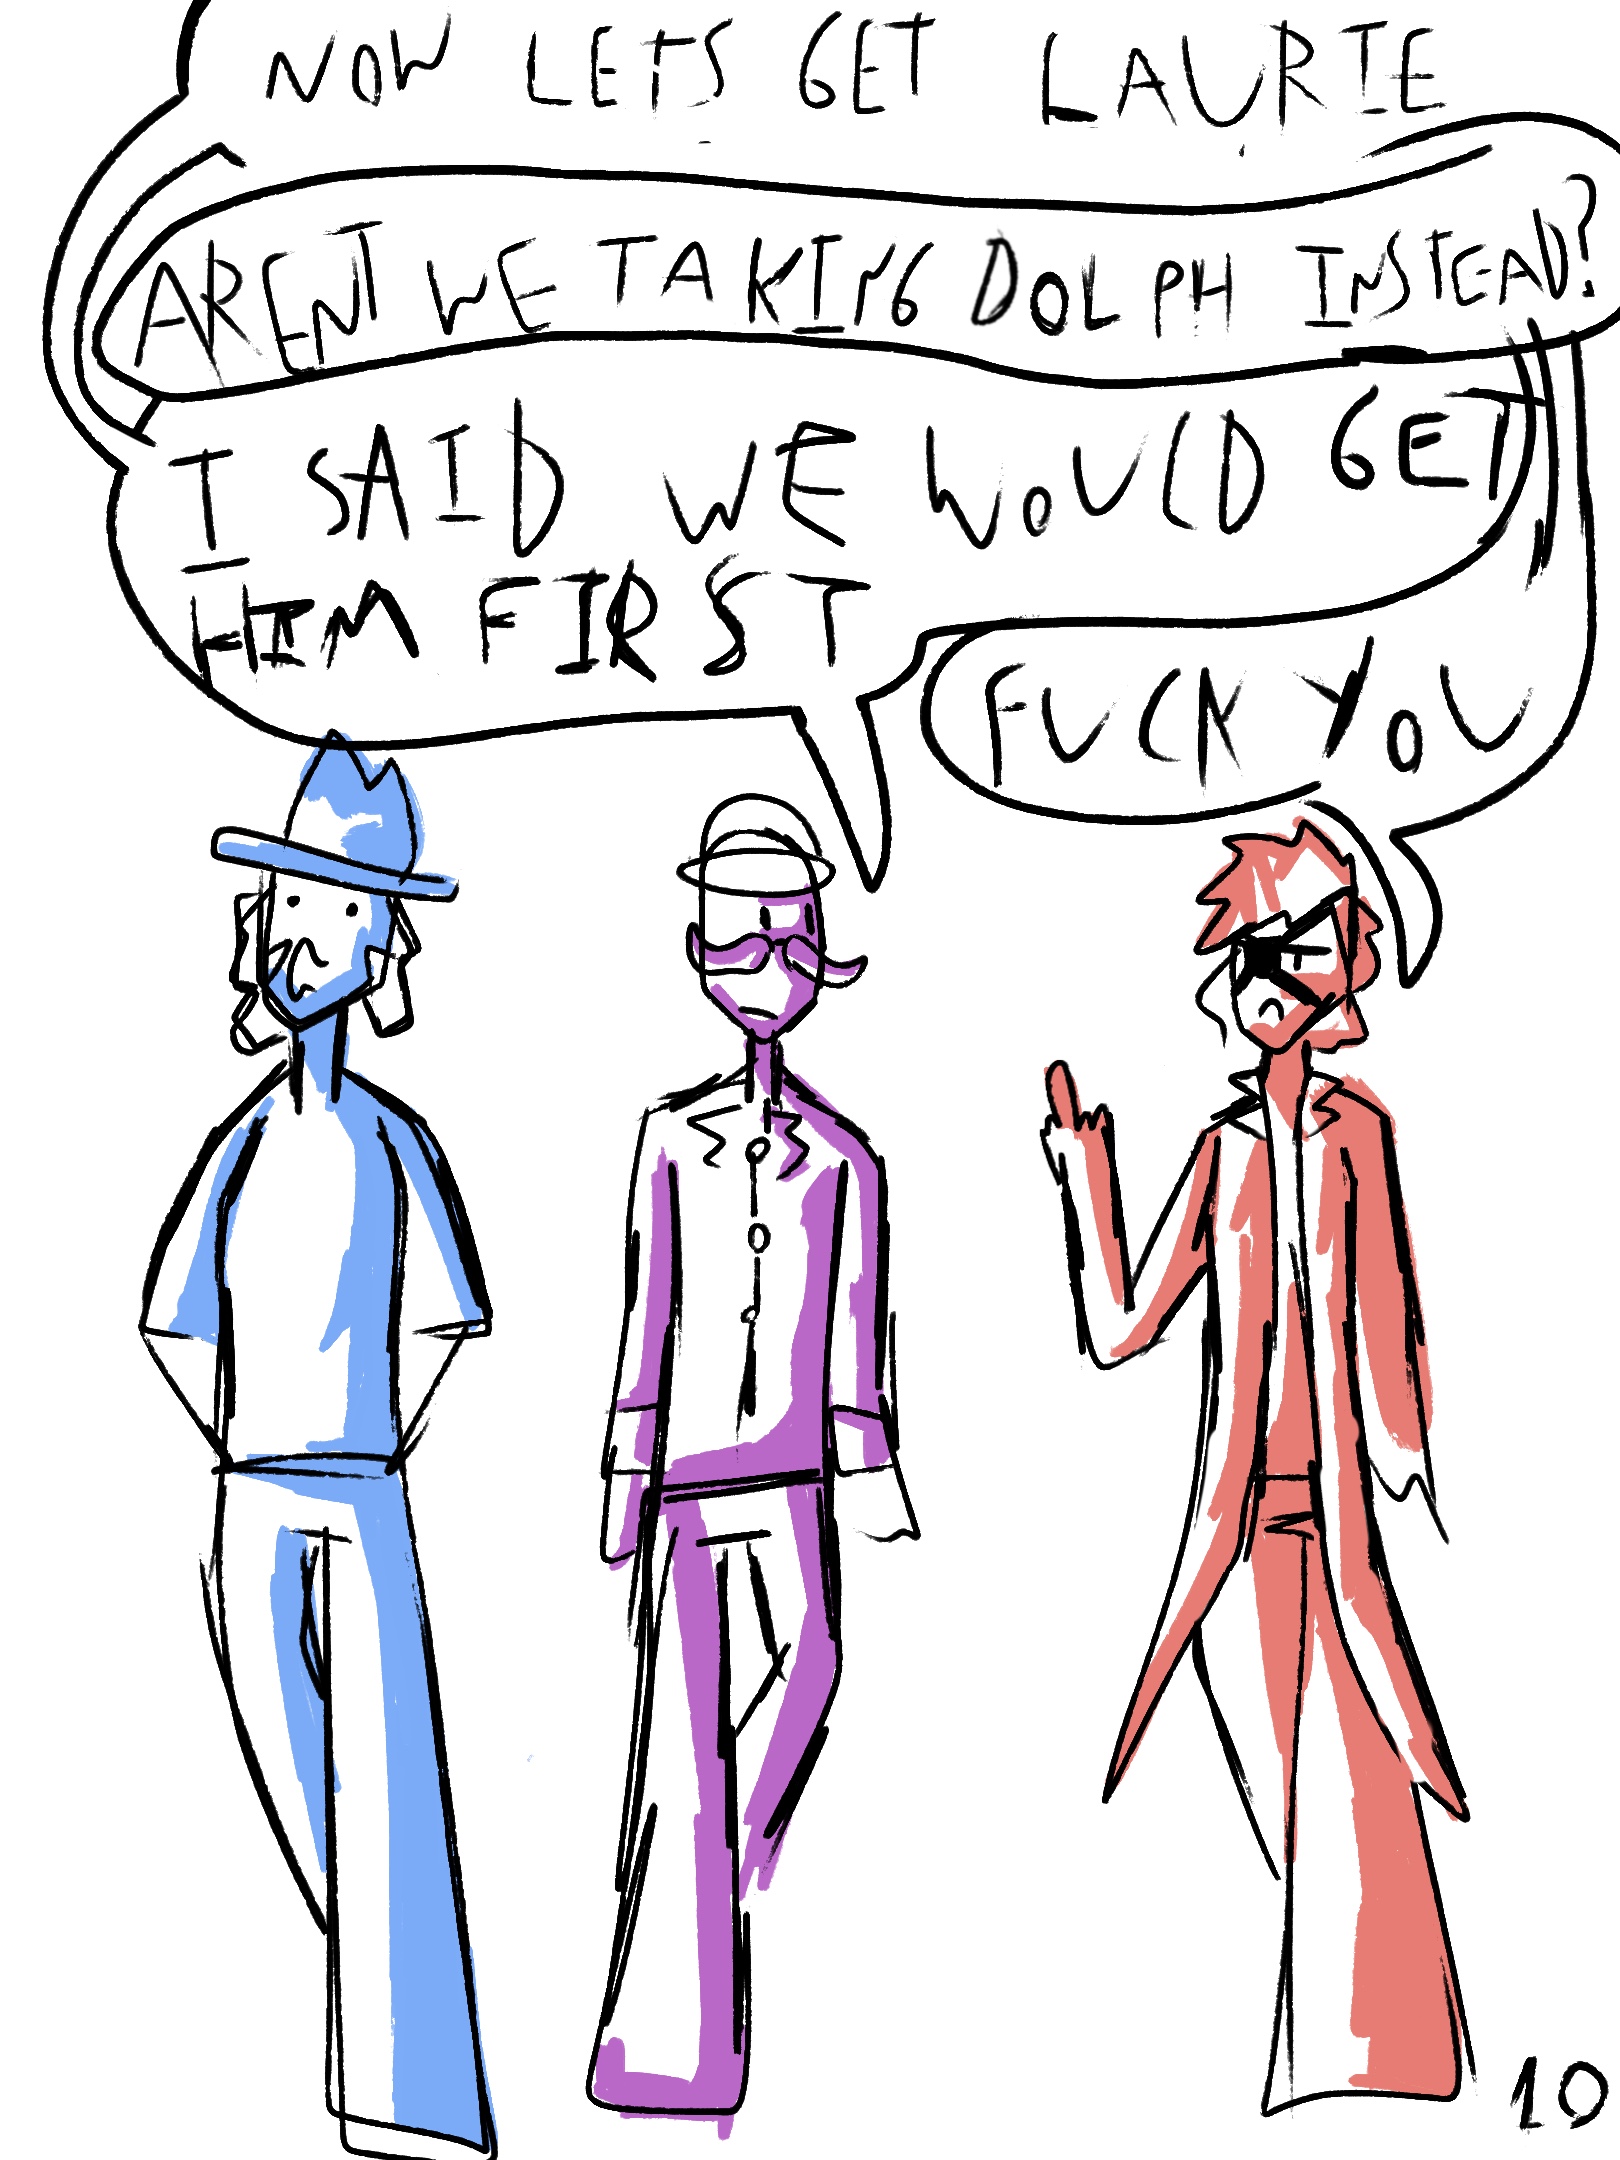 NOW LETS GET LAURIE
ARENT WE TAKING DOLPH INSTEAD?
I SAID WE WOULD GET
HIM FIRST
FUCK YOU
10